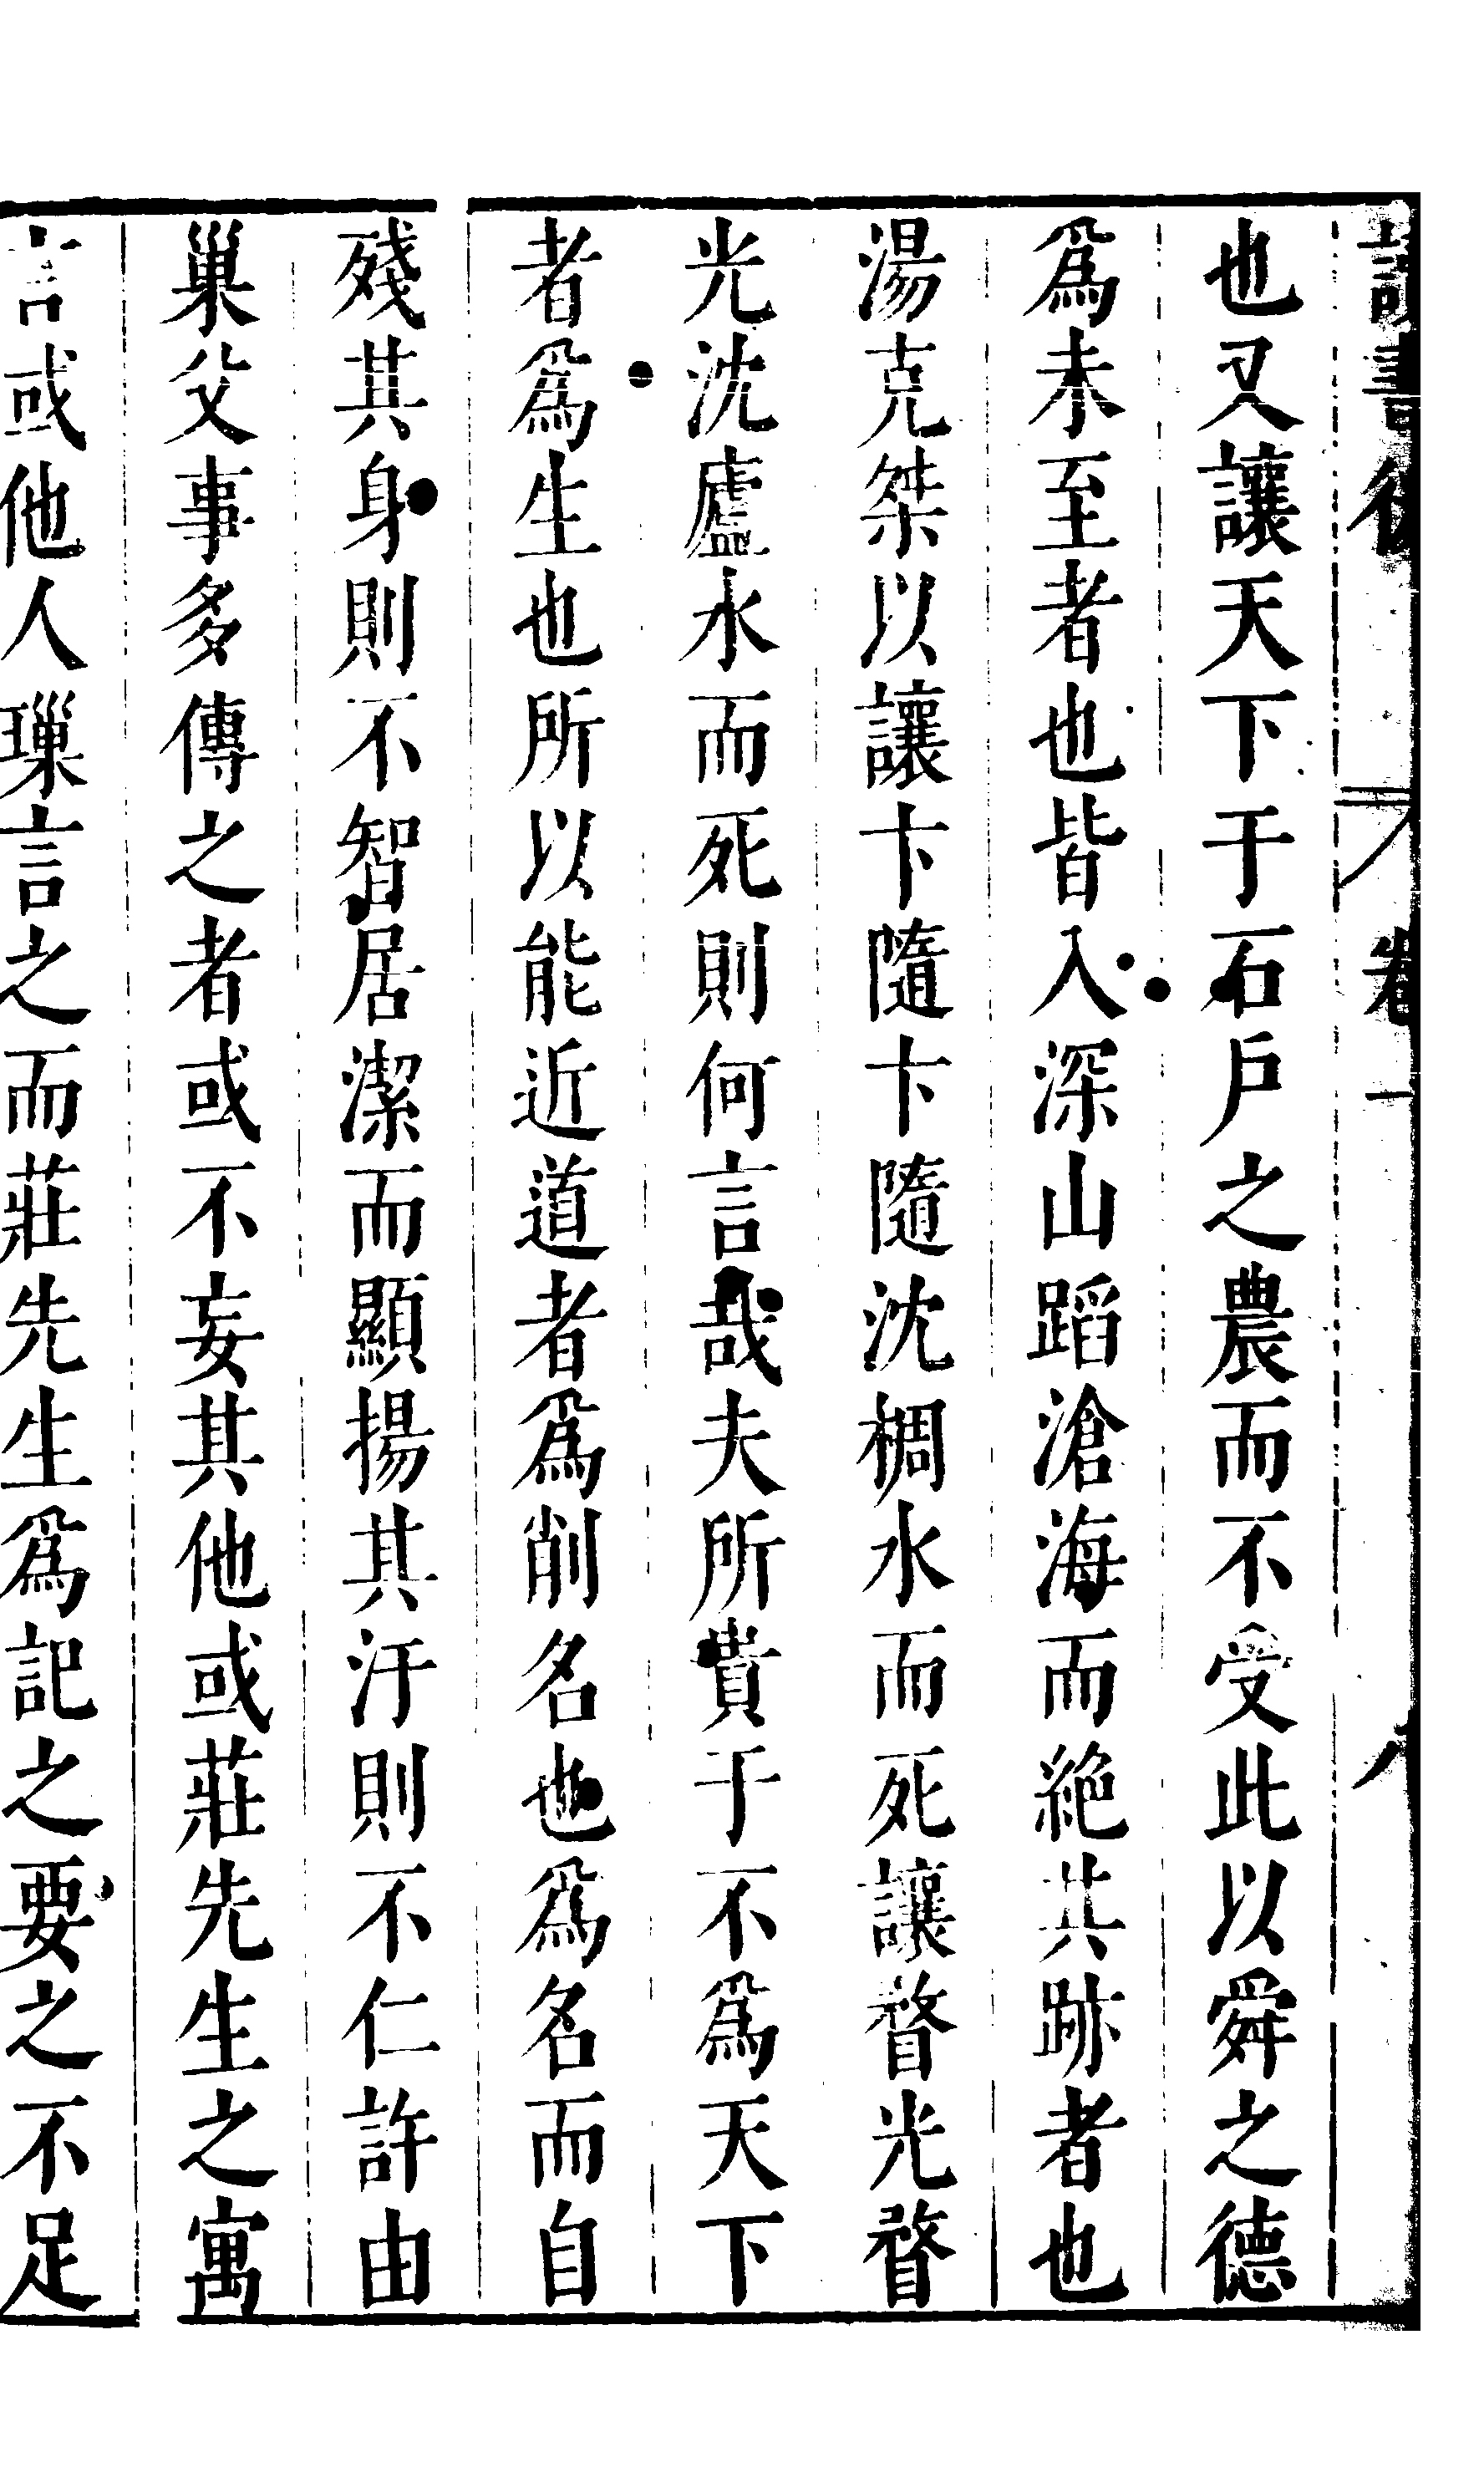 讀書後 卷一 八
也又讓天下于石戶之農而不受此以舜之德
爲未至者也皆入深山蹈滄海而絶其跡者也
湯克桀以讓卞隨卞隨沈椆水而死讓瞀光瞀
光沈廬水而死則何言哉夫所貴于不爲天下
者爲生也所以能近道者爲削名也爲名而自
殘其身則不智居潔而顯揚其汙則不仁許由
巢父事多傳之者或不妄其他或莊先生之寓
言或他人璅言之而莊先生爲記之要之不足